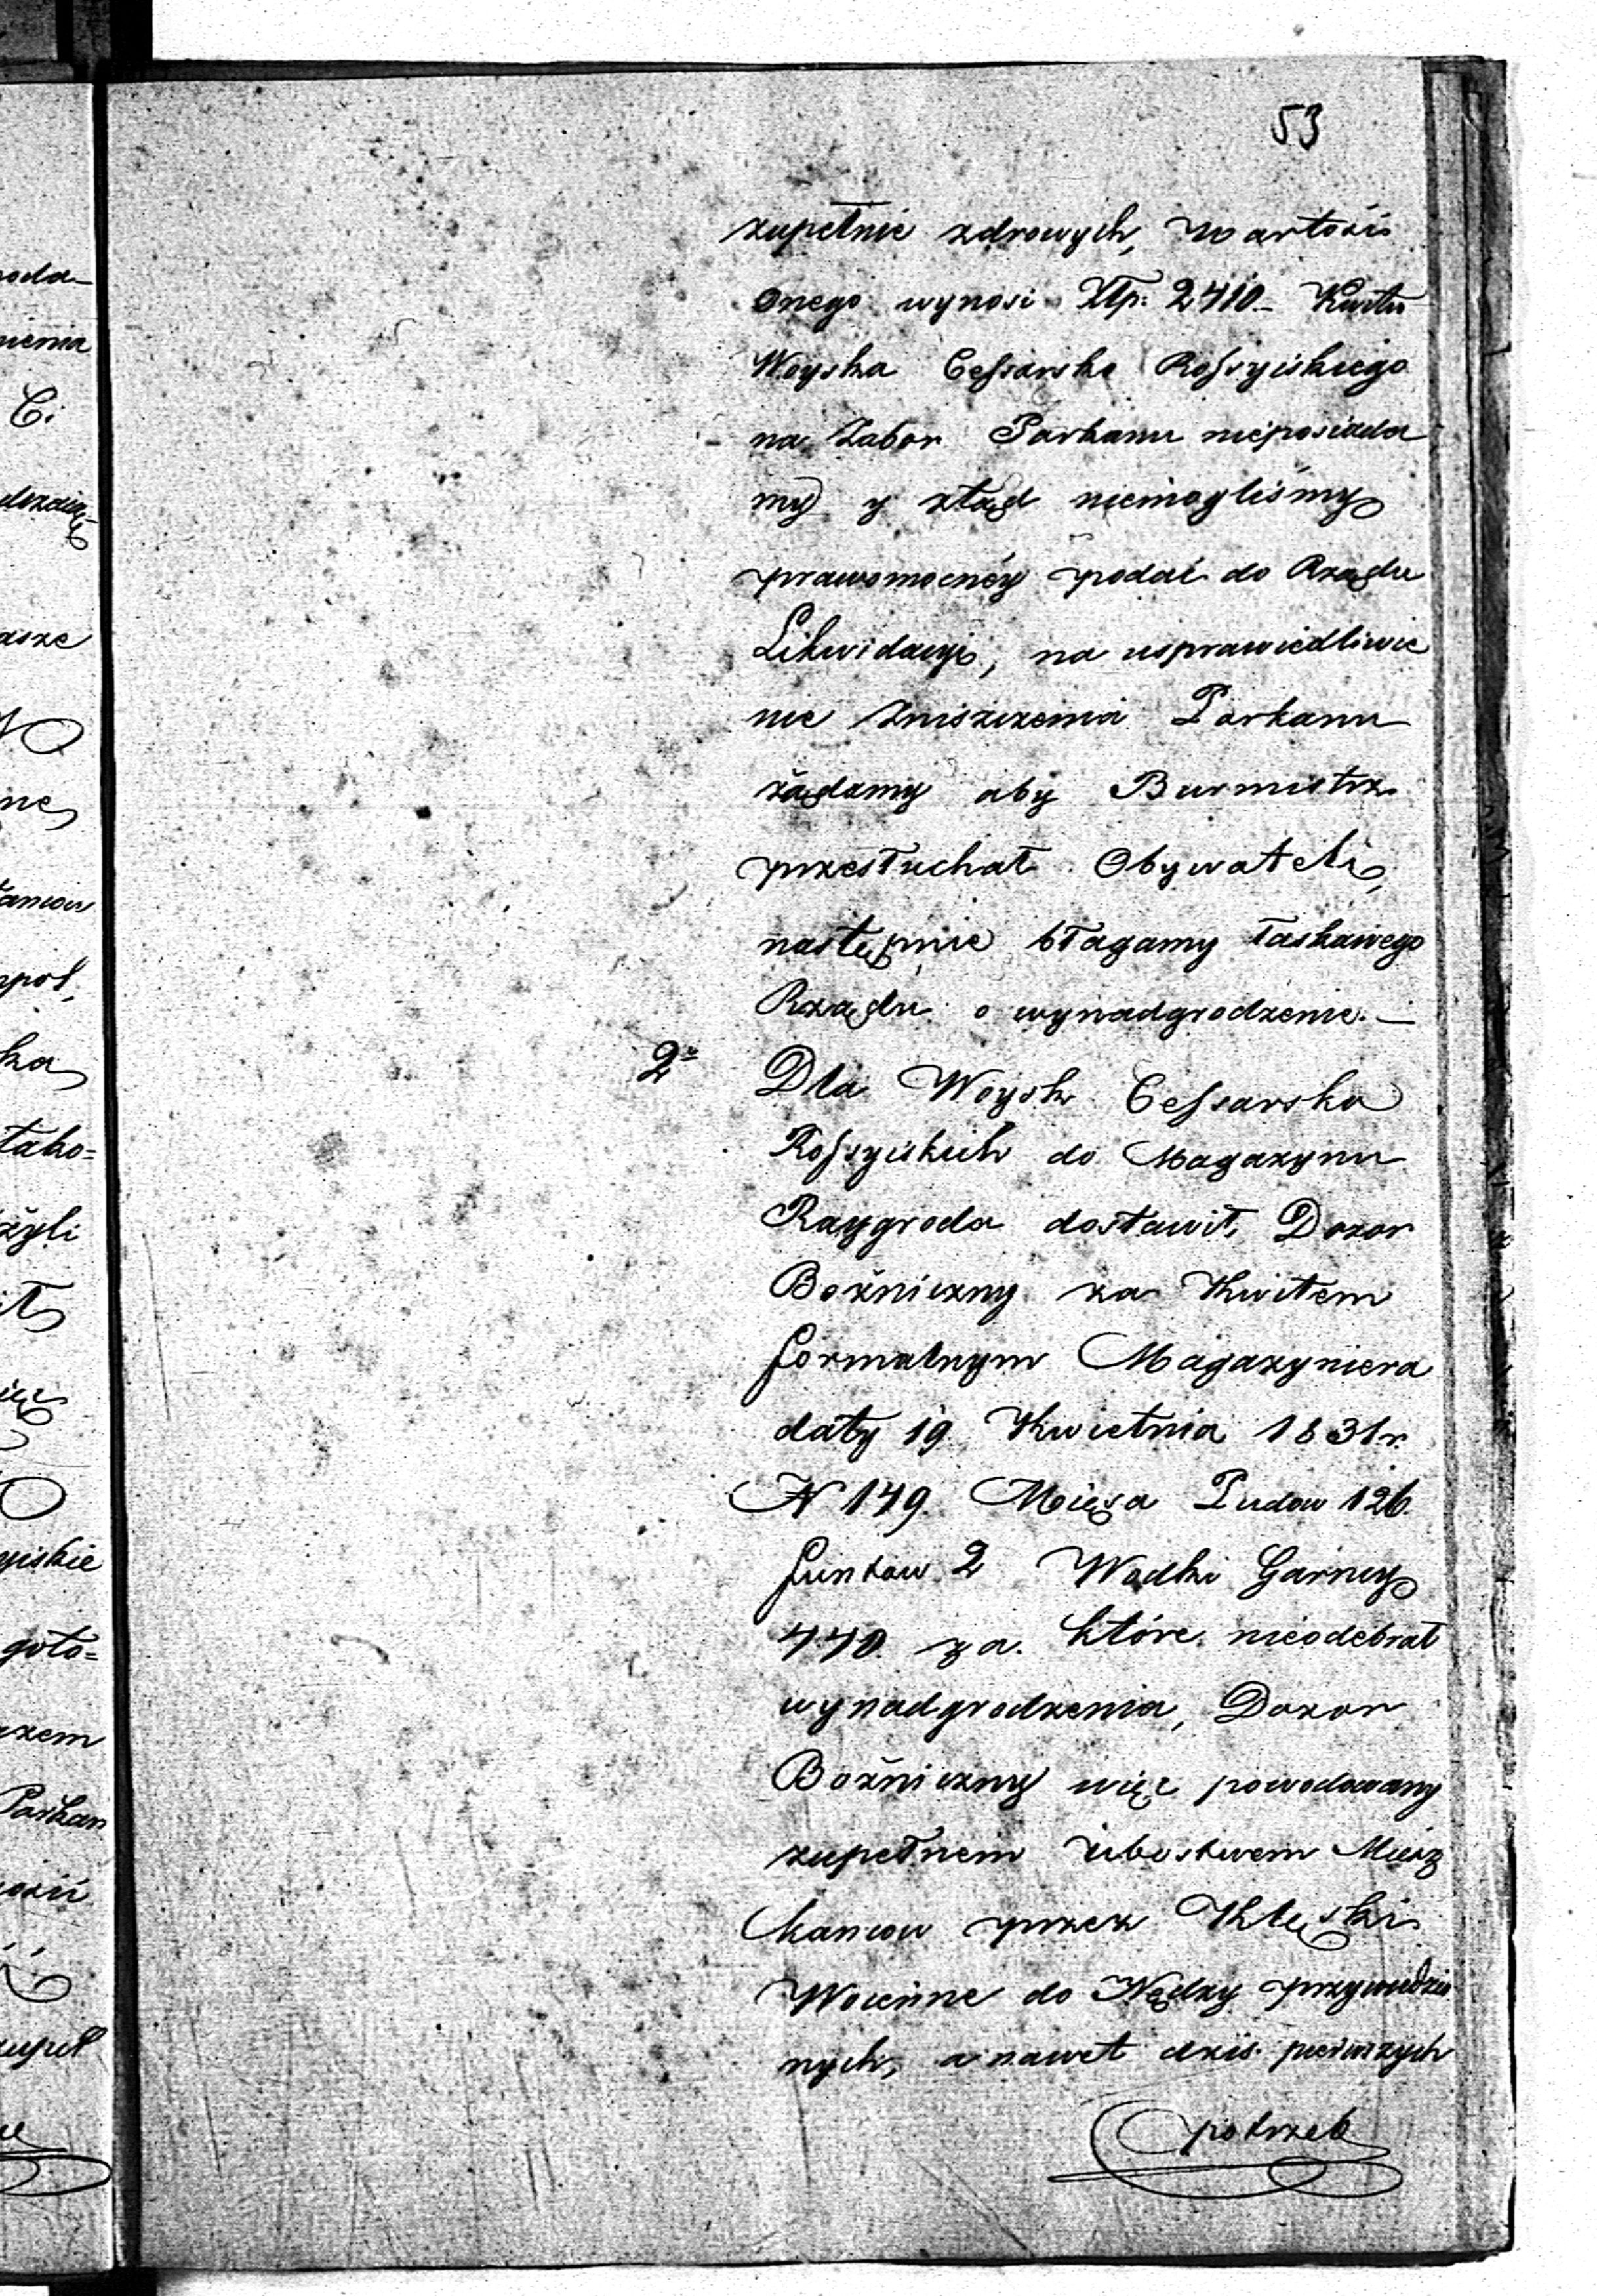 53
zupełnie zdrowych, wartość
onego wynosi Złp: 2410 – Kwitu
Woyska Cessarsko Rossyiskiego
na Zabor Parkanu nieposiada
my y ztąd niemogliśmy
prawomocnéy podać do Rządu
Likwidacyi, na usprawiedliwie
nie Zniszczenia Parkanu
żądamy aby Burmistrz
przesłuchał Obywateli,
następnie błagamy łaskawego
Rządu o wynadgrodzenie. –
2o Dla Woysk Cessarsko
Rossyiskich do Magazynu
Raygroda dostawił, Dozor
Bożniczny za Kwitem
formalnym Magazyniera
daty 19 Kwietnia 1831 r.
N 149. Mięsa Pudow 126.
funtow 2 Wodki Garncy
440. za które nieodebrał
wynadgrodzenia, Dozor
Bożniczny więc powodowany
zupełnem ubostwem Miesz
kancow przez Klęski
Woienne do Nędzy przywiedzio
nych, a nawet dziś pierwszych
potrzeb
oda–
nienia
Ci
asze
ne
ka
tako=
żyli
yiskie
goto=
zem
Parkan
zupeł